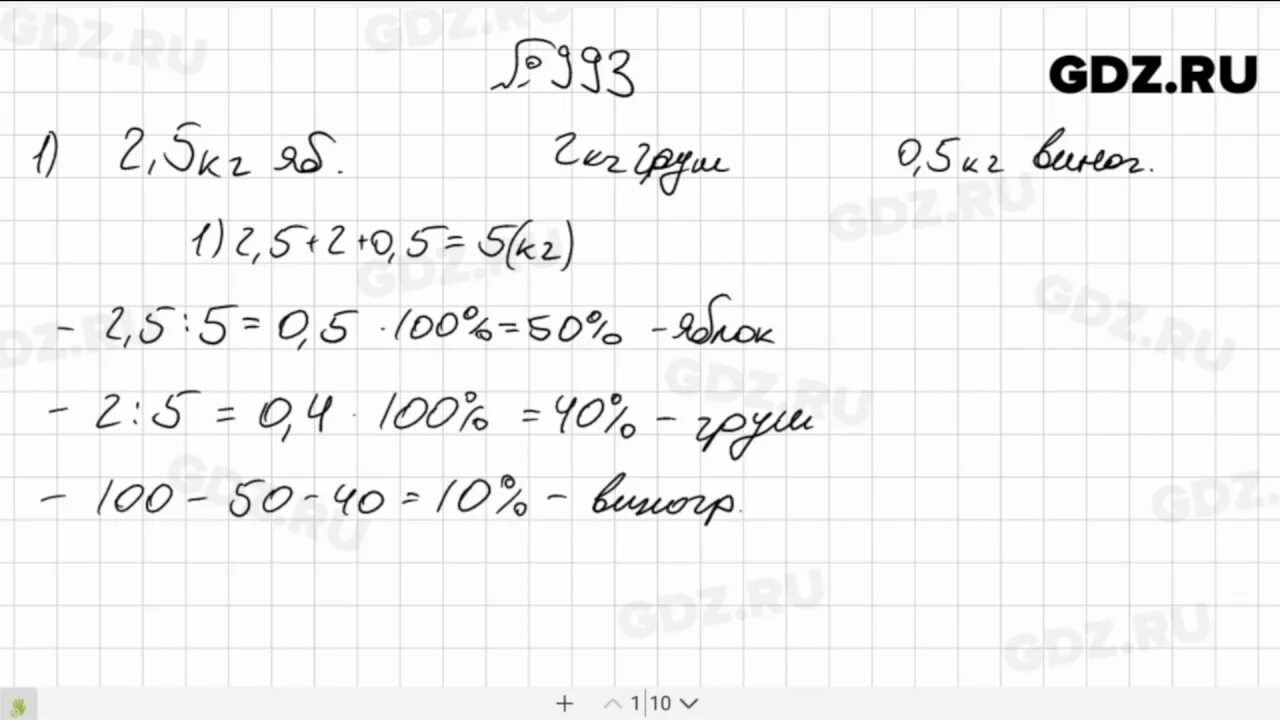 №993
GDZ.RU
1) 2,5кг яб. 2кг груш 0,5кг виног.
1) 2,5+2+0,5=5(кг)
- 2,5:5=0,5 ·100%=50% -яблок
- 2:5=0,4 · 100% =40% - груш
- 100-50-40=10% - виногр.
+ 1|10